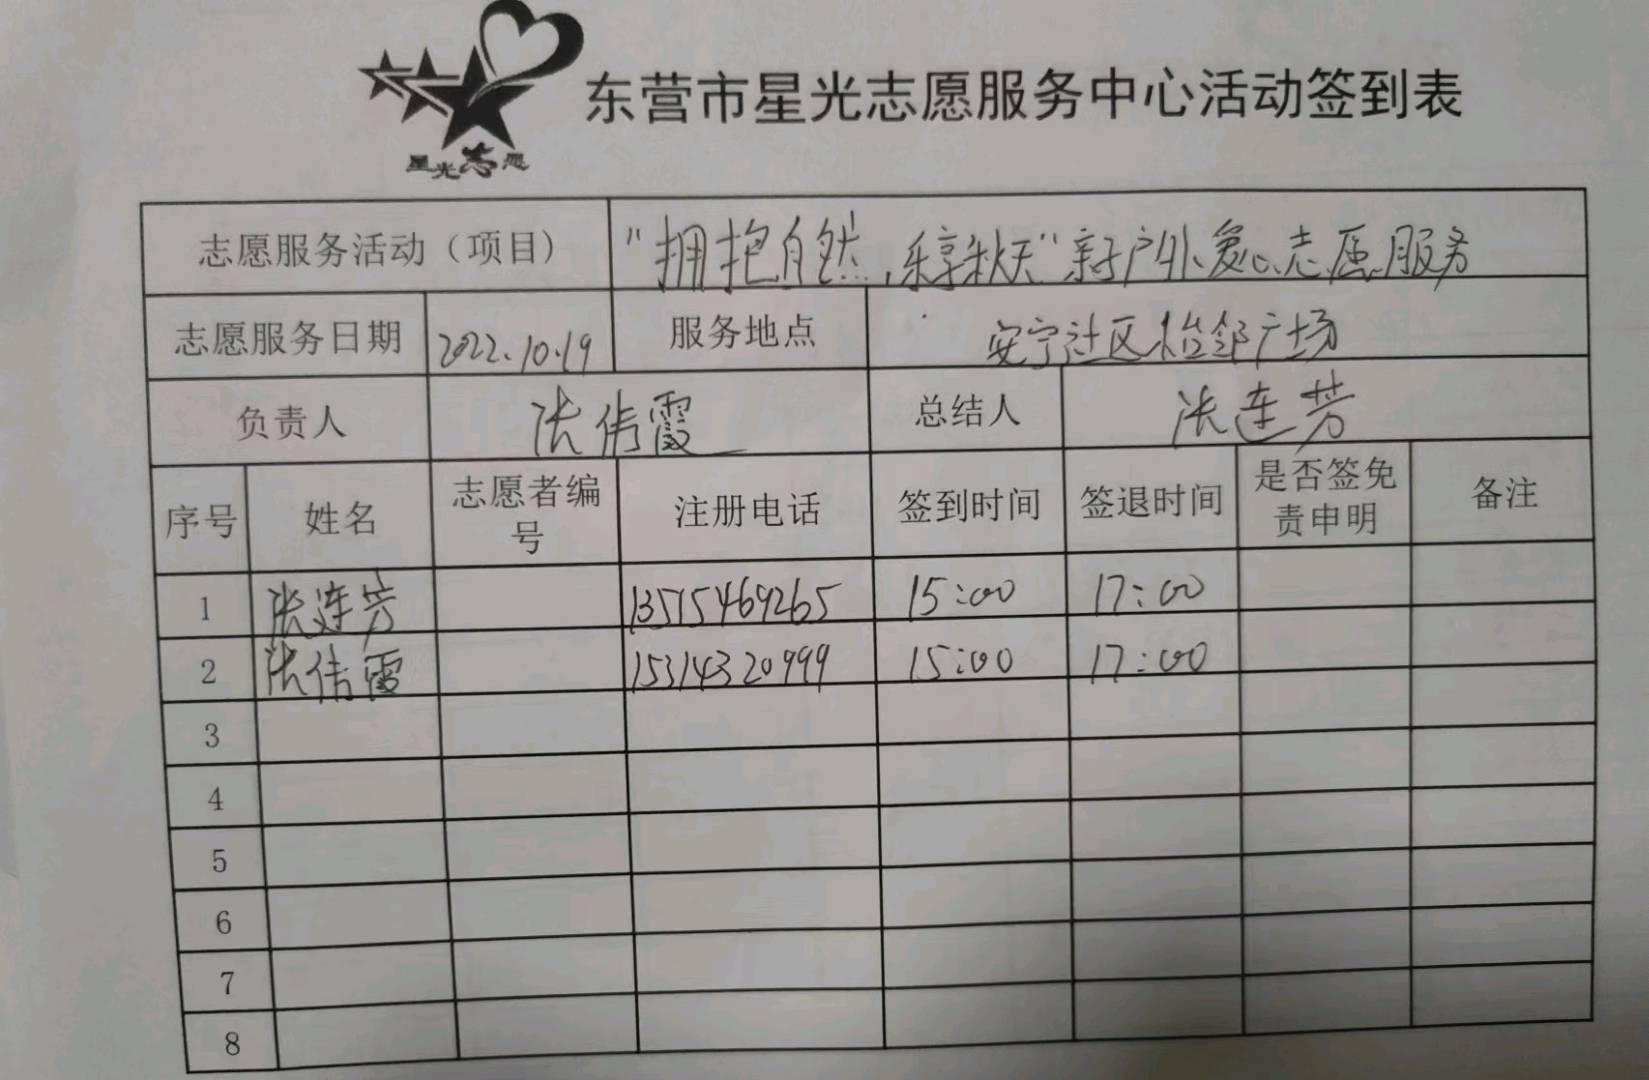 星光志愿
东营市星光志愿服务中心活动签到表
志愿服务活动（项目） "拥抱自然，乐享秋天"亲子户外爱心志愿服务
志愿服务日期 2022.10.19 服务地点 安宁社区怡邻广场
负责人 张伟霞 总结人 张连芳
序号 姓名 志愿者编号 注册电话 签到时间 签退时间 是否签免责申明 备注
1 张连芳 13515469265 15:00 17:00
2 张伟霞 15314320999 15:00 17:00
3
4
5
6
7
8